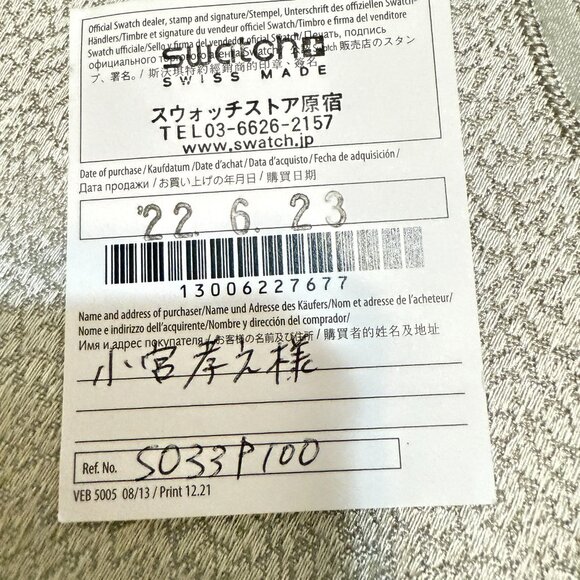 Official Swatch dealer, stamp and signature/Stempel, Unterschrift des offiziellen Swatch-
Händlers/Timbre et signature du vendeur officiel Swatch/Timbro e firma del venditore
Swatch ufficiale/Sello y firma del vendedor oficial Swatch/ Печать, подпись
официального торгового агента Swatch / 販売店のスタン
プ、署名。/ 斯沃琪特約經銷商的印章、簽名
swatch
SWISS MADE
スウォッチストア原宿
TEL03-6626-2157
www.swatch.jp
Date of purchase/Kaufdatum /Date d'achat/ Data d'acquisto/ Fecha de adquisición/
Дата продажи / お買い上げの年月日 / 購買日期
'22. 6. 23
13006227677
Name and address of purchaser/Name und Adresse des Käufers/Nom et adresse de l'acheteur/
Nome e indirizzo dell'acquirente/Nombre y dirección del comprador/
Имя и адрес покупателя / お客様の名前及び住所 / 購買者的姓名及地址
小宮孝之様
Ref. No. SO33P100
VEB 5005 08/13 / Print 12.21